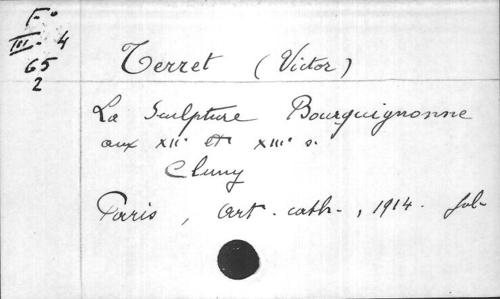 F°
III. 4
65
2
Terret (Victor)
La Sculpture Bourguignonne
aux XIIe et XIIIe s.
Cluny
Paris, Art. cath., 1914. fol.